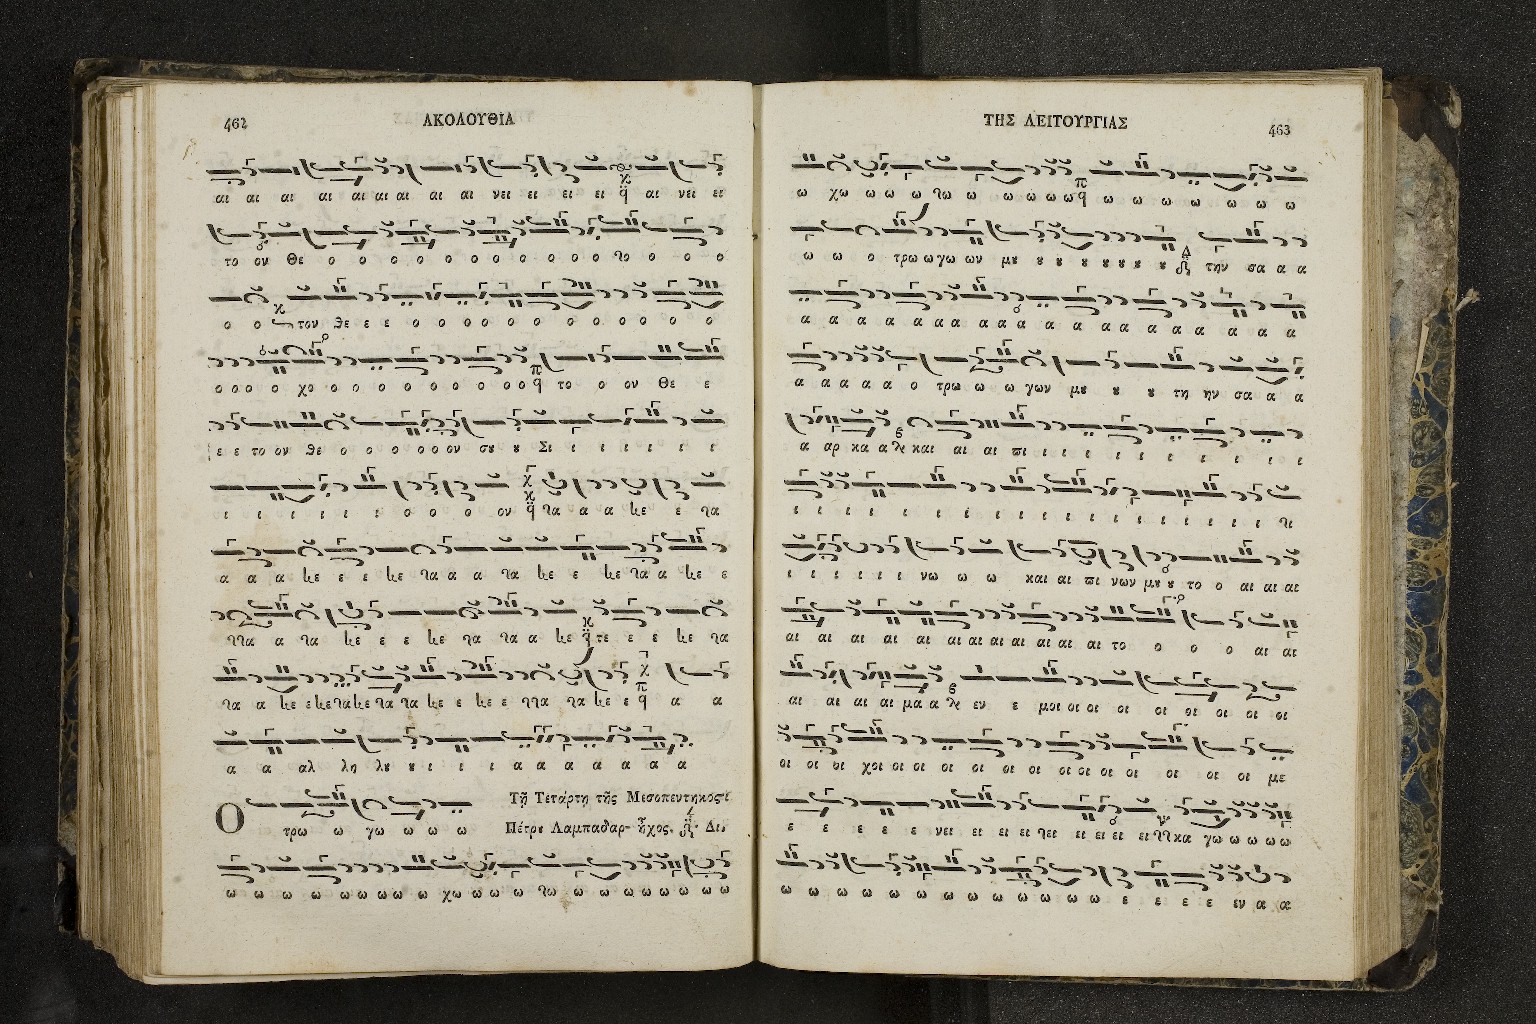 462
ΑΚΟΛΟΥΘΙΑ
αι αι αι αι αι αι αι αι αι νει ει ει ει αι νει ει
το ον Θε ο ο ο ο ο ο ο ο ο ο το ο ο ο
ο ο τον Θε ε ε ο ο ο ο ο ο ο ο ο ο ο ο
ο ο ο ο χο ο ο ο ο ο ο ο ο ο ο το ο ον Θε ε
ε ε το ον Θε ο ο ο ο ο ο ον σȣ ȣ Σι ι ι ι ι ι ι
ι ι ι ι ι ι ο ο ο ον τα α α κε ε τα
α α α κε ε ε κε τα α α τα κε ε κε τα α κε ε
ττα α τα κε ε ε κε τα τα α κε τε ε ε κε τα
τα α κε ε κε τα κε τα τα κε ε κε ε ττα τα κε ε α α
α α αλ λη λȣ ȣ ι ι ι α α α α α α α
Ο τρω ω γω ω ω ω
Τῇ Τετάρτη τῆς Μεσοπεντηκοςῆ
Πέτρȣ Λαμπαδαρ- ἦχος, Δι,
ω ω ω ω ω ω ω ω ω χω ω ω ω τω ω ω ω ω ω ω ω ω
ΤΗΣ ΛΕΙΤΟΥΡΓΙΑΣ
463
ω χω ω ω ω τω ω ω ω ω ω ω ω ω ω ω ω ω
ω ω ο τρω ω γω ων μȣ ȣ ȣ ȣ ȣ ȣ ȣ ȣ την σα α α
α α α α α α α α α α α α α α α α α α α
α α α α α ο τρω ω ω γων μȣ ȣ ȣ τη ην σα α α
α αρ κα α και αι αι πι ι ι ι ι ι ι ι ι ι
ι ι ι ι ι ι ι ι ι ι ι ι ι ι ι ι ι ι τι
ι ι ι ι ι ι νω ω ω και αι πι νων μȣ ȣ το ο αι αι αι
αι αι αι αι αι αι αι αι αι αι αι αι το ο ο ο αι αι
αι αι αι αι μα α εν ε μοι οι οι οι οι οι οι οι οι
οι οι οι χοι οι οι οι οι οι οι οι οι οι οι οι οι οι με
ε ε ε ε ε νει ει ει ει τει ει ει ει ει κα γω ω ω ω ω
ω ω ω ω ω ω ω ω ω ω ω ω ω ε ε ε ε εν α α